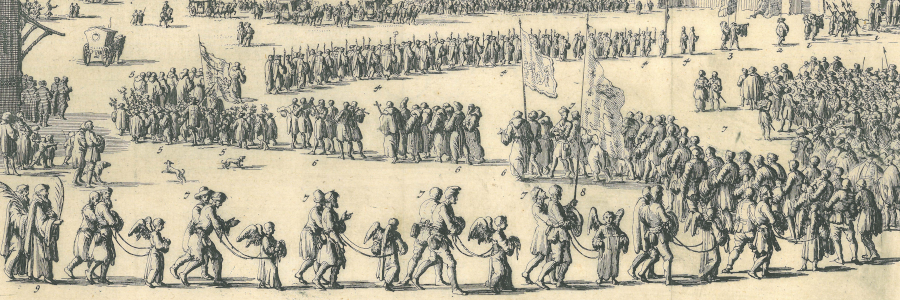 3 2
4 4 4 4
7
5 5 6 6 6
7 7 7 7 8
9